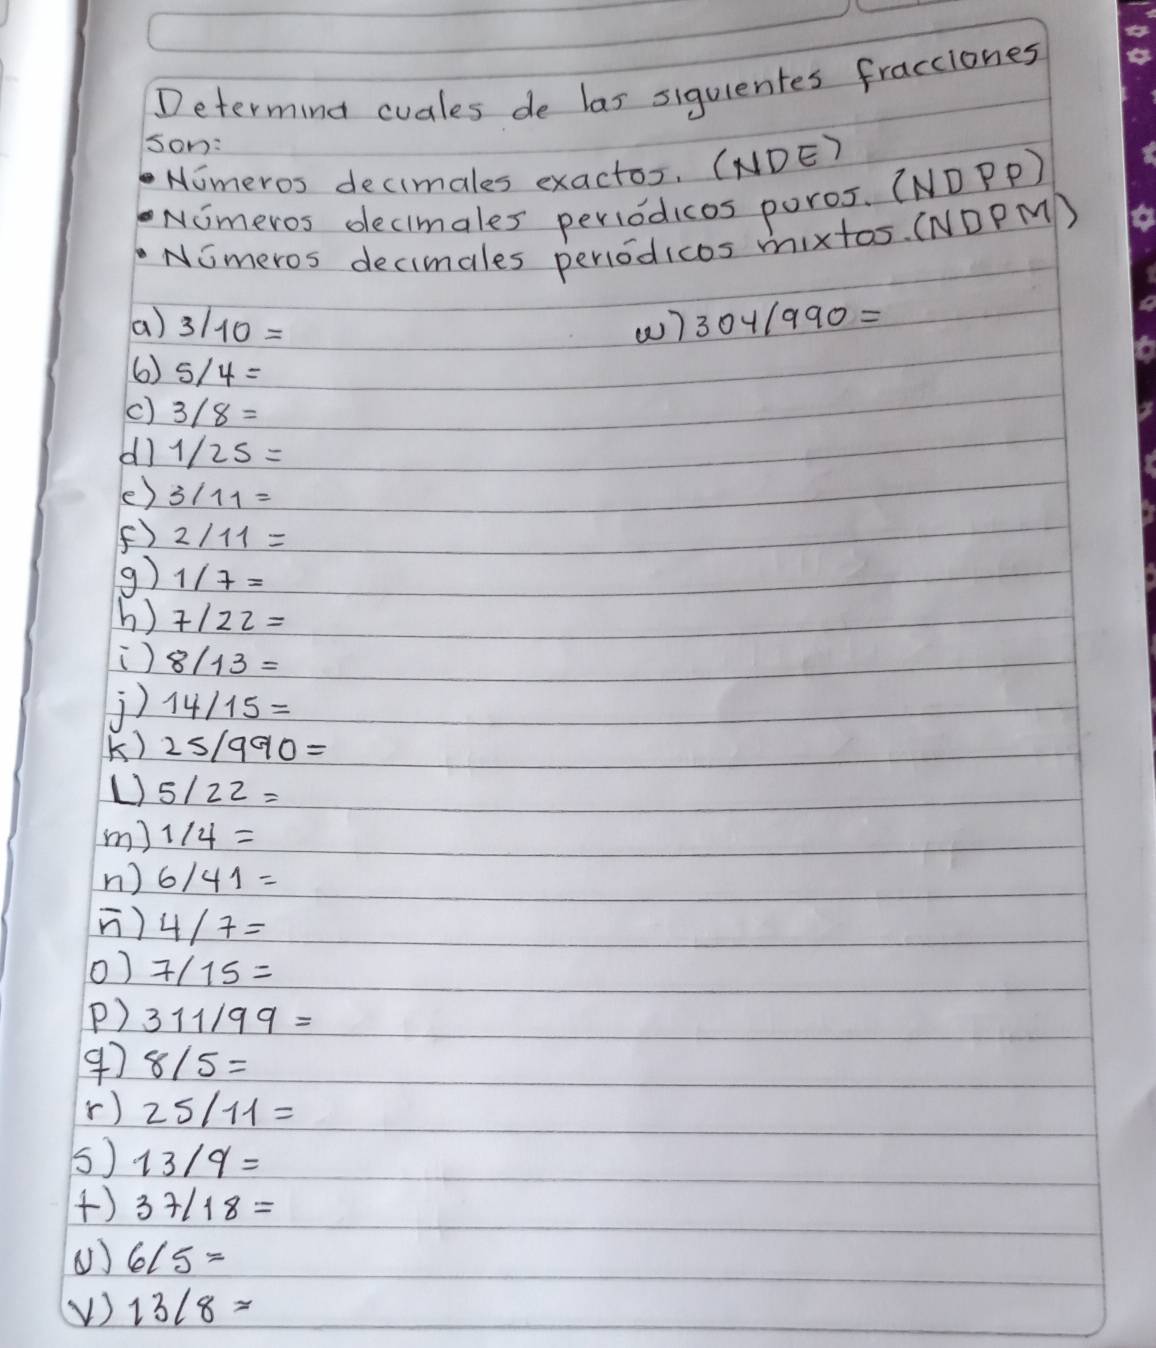 Determina cuales de las siguientes fracciones
son:
• Números decimales exactos. (NDE)
• Números decimales periódicos puros. (NDPP)
• Números decimales periódicos mixtos. (NDPM)
a) 3/10 =
w) 304/990 =
b) 5/4 =
c) 3/8 =
d) 1/25 =
e) 3/11 =
f) 2/11 =
g) 1/7 =
h) 7/22 =
i) 8/13 =
j) 14/15 =
k) 25/990 =
L) 5/22 =
m) 1/4 =
n) 6/41 =
ñ) 4/7 =
o) 7/15 =
p) 311/99 =
q) 8/5 =
r) 25/11 =
s) 13/9 =
t) 37/18 =
u) 6/5 =
v) 13/8 =